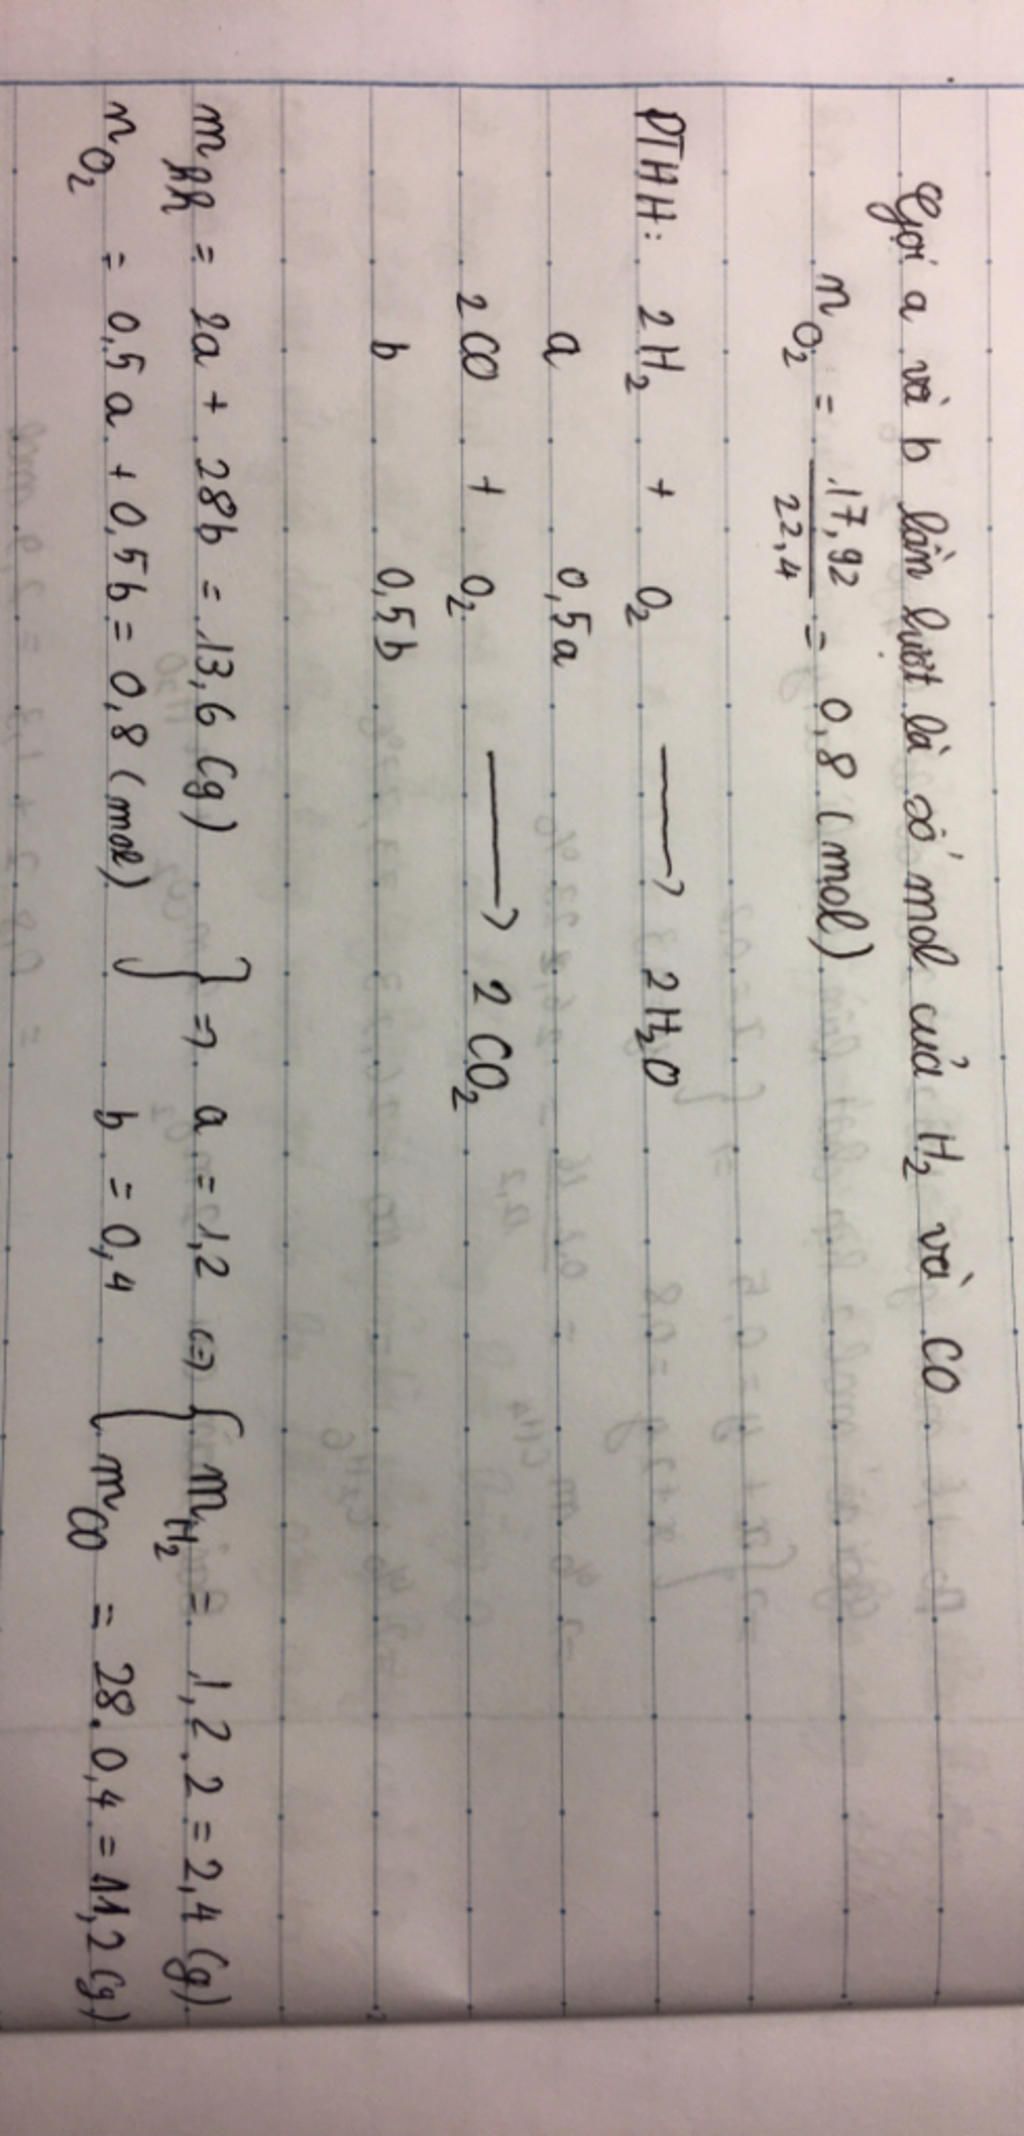 Gọi a và b lần lượt là số mol của H₂ và CO
n O₂ = 17,92 / 22,4 = 0,8 (mol)
PTHH: 2H₂ + O₂ ⟶ 2H₂O
a 0,5a
2CO + O₂ ⟶ 2CO₂
b 0,5b
m hh = 2a + 28b = 13,6 (g) } => a = 1,2 => { m H₂ = 1,2.2 = 2,4 (g)
n O₂ = 0,5a + 0,5b = 0,8 (mol) b = 0,4 m CO = 28.0,4 = 11,2 (g)